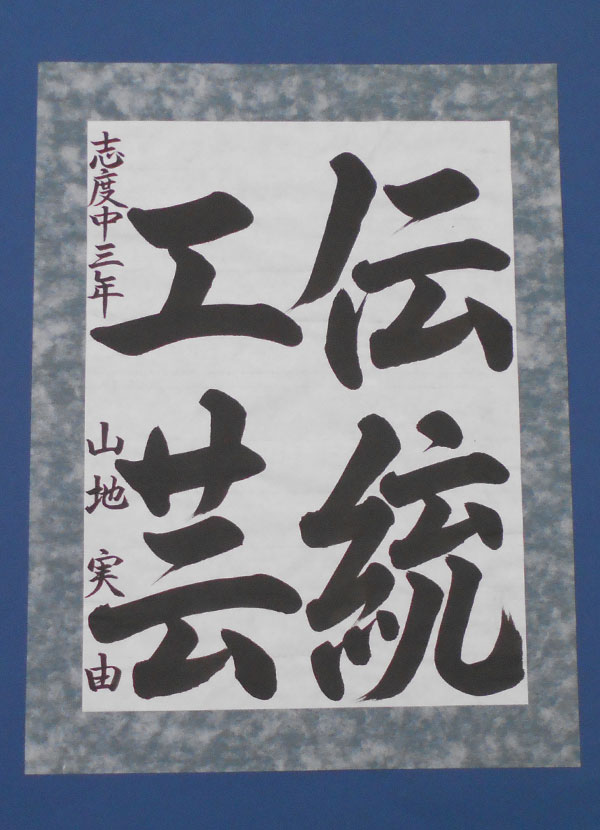 伝統
工芸
志度中三年 山地 実由